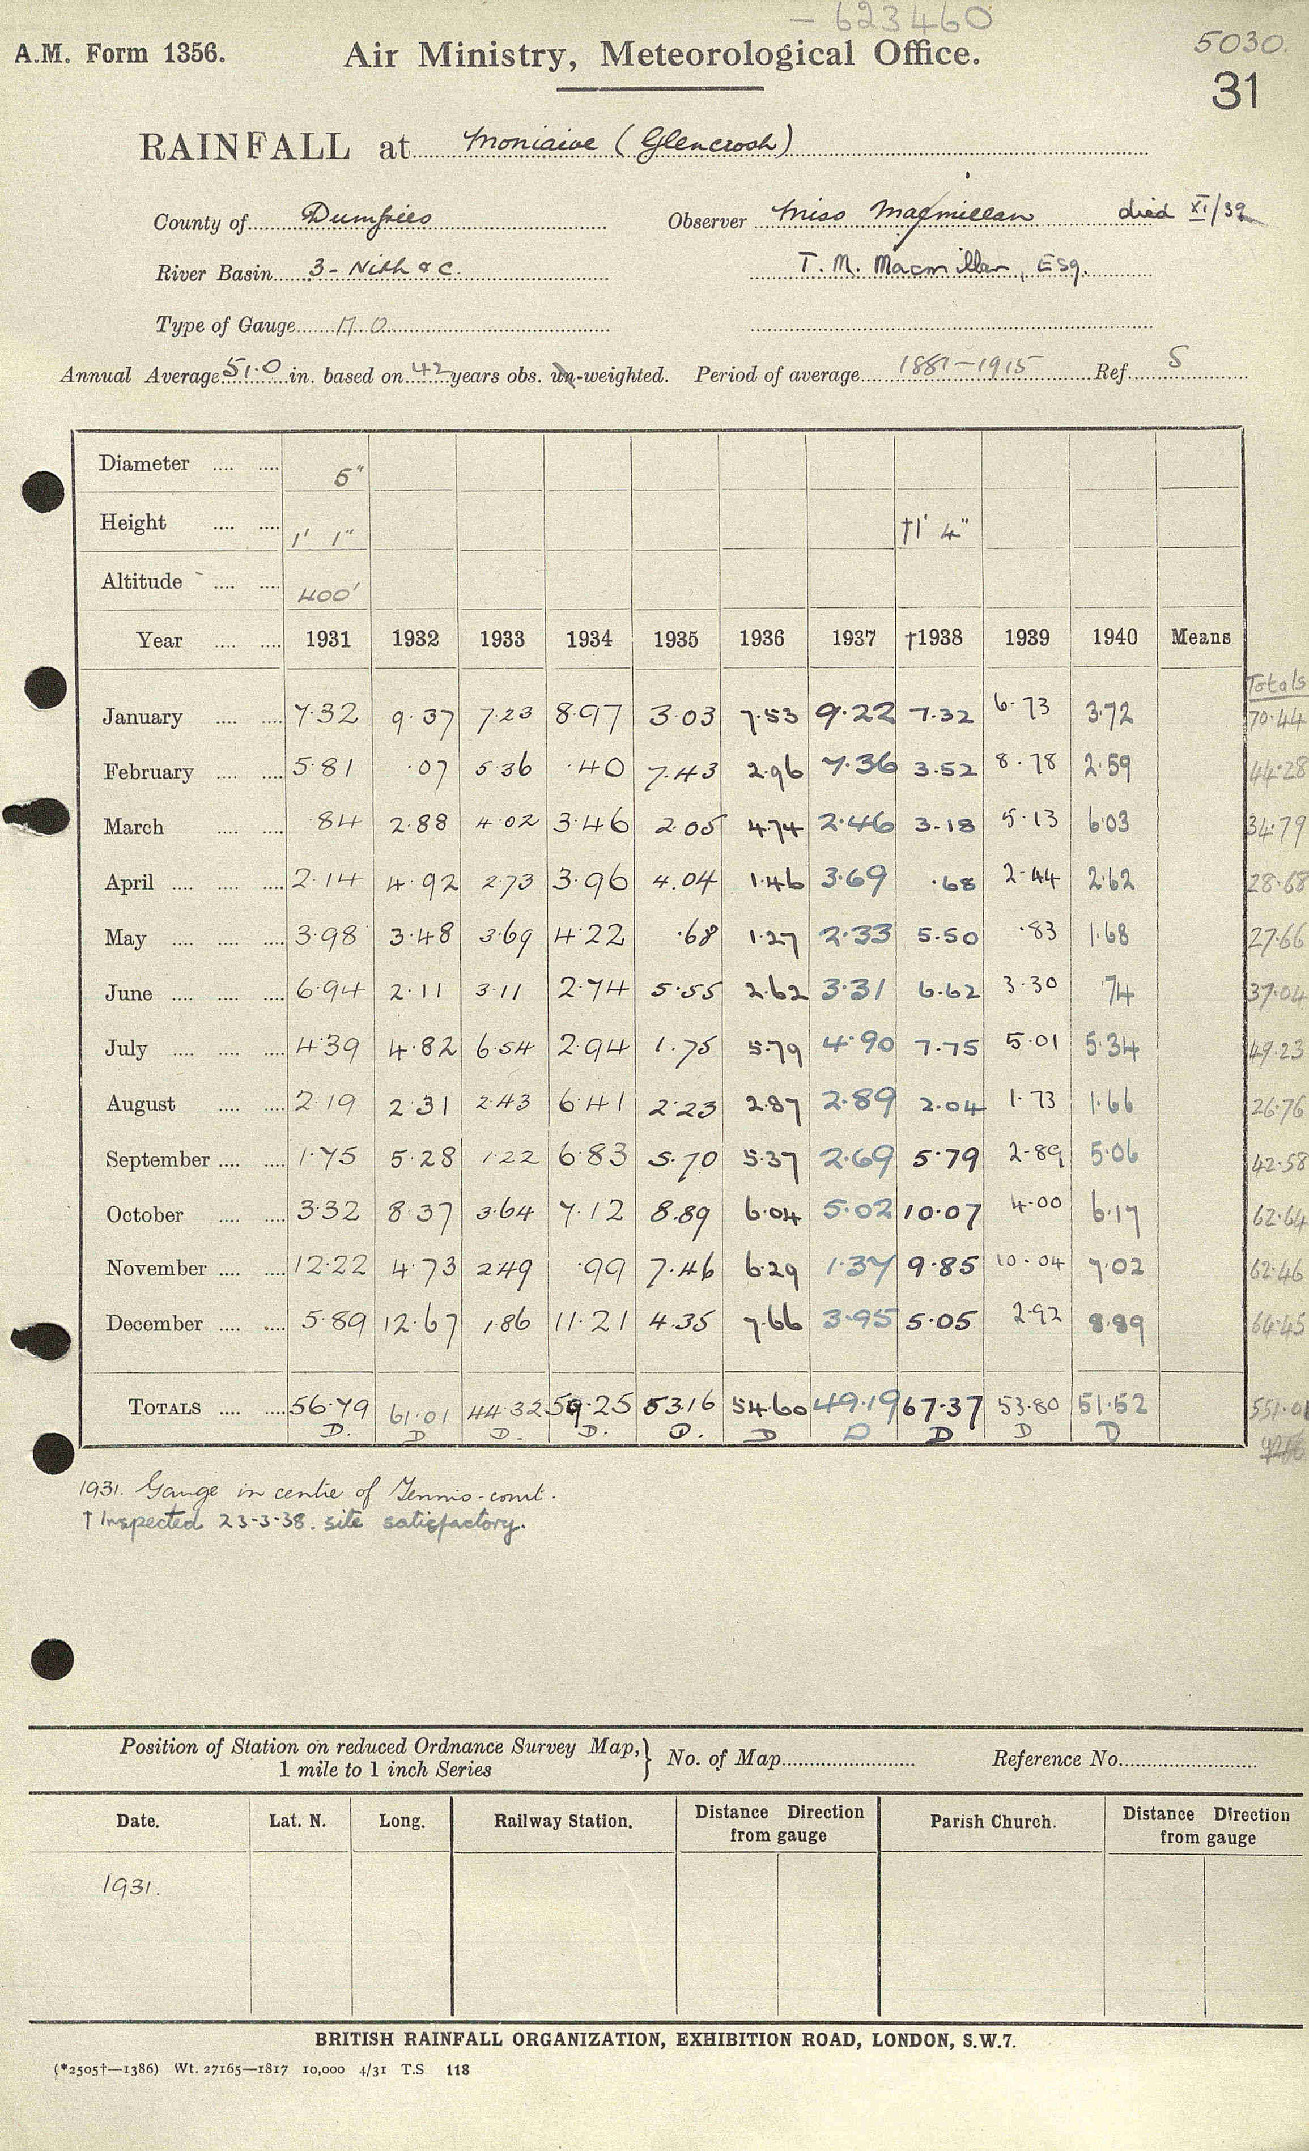 — 623460
A.M. Form 1356. Air Ministry, Meteorological Office. 5030.
31
RAINFALL at Moniaive (Glencrosh)
County of Dumfries Observer Miss Macmillan died XI/39
River Basin 3 - Nith & c. T. M. Macmillan, Esq.
Type of Gauge M.O.
Annual Average 51.0 in. based on 42 years obs. un-weighted. Period of average 1881-1915 Ref. S
Diameter 5"
Height 1' 1" †1' 4"
Altitude 400'
Year 1931 1932 1933 1934 1935 1936 1937 †1938 1939 1940 Means
Totals
January 7.32 9.37 7.23 8.97 3.03 7.53 9.22 7.32 6.73 3.72 70.44
February 5.81 .07 5.36 .40 7.43 2.96 7.36 3.52 8.78 2.59 44.28
March .84 2.88 4.02 3.46 2.05 4.74 2.46 3.18 5.13 6.03 34.79
April 2.14 4.92 2.73 3.96 4.04 1.46 3.69 .68 2.44 2.62 28.68
May 3.98 3.48 3.69 4.22 .68 1.27 2.33 5.50 .83 1.68 27.66
June 6.94 2.11 3.11 2.74 5.55 2.62 3.31 6.62 3.30 .74 37.04
July 4.39 4.82 6.54 2.94 1.75 5.79 4.90 7.75 5.01 5.34 49.23
August 2.19 2.31 2.43 6.41 2.23 2.87 2.89 2.04 1.73 1.66 26.76
September 1.75 5.28 1.22 6.83 5.70 5.37 2.69 5.79 2.89 5.06 42.58
October 3.32 8.37 3.64 7.12 8.89 6.04 5.02 10.07 4.00 6.17 62.64
November 12.22 4.73 2.49 .99 7.46 6.29 1.37 9.85 10.04 7.02 62.46
December 5.89 12.67 1.86 11.21 4.35 7.66 3.95 5.05 2.92 8.89 64.45
TOTALS 56.79 61.01 44.32 59.25 53.16 54.60 49.19 67.37 53.80 51.52 551.01
D. D D. D. D. D D D D D
1931. Gauge in centre of Tennis-court.
† Inspected 23-3-38. site satisfactory.
Position of Station on reduced Ordnance Survey Map, 1 mile to 1 inch Series } No. of Map Reference No.
Date. Lat. N. Long. Railway Station. Distance Direction from gauge Parish Church. Distance Direction from gauge
1931.
BRITISH RAINFALL ORGANIZATION, EXHIBITION ROAD, LONDON, S.W.7.
(*2505†—1386) Wt. 27165—1817 10,000 4/31 T.S 118